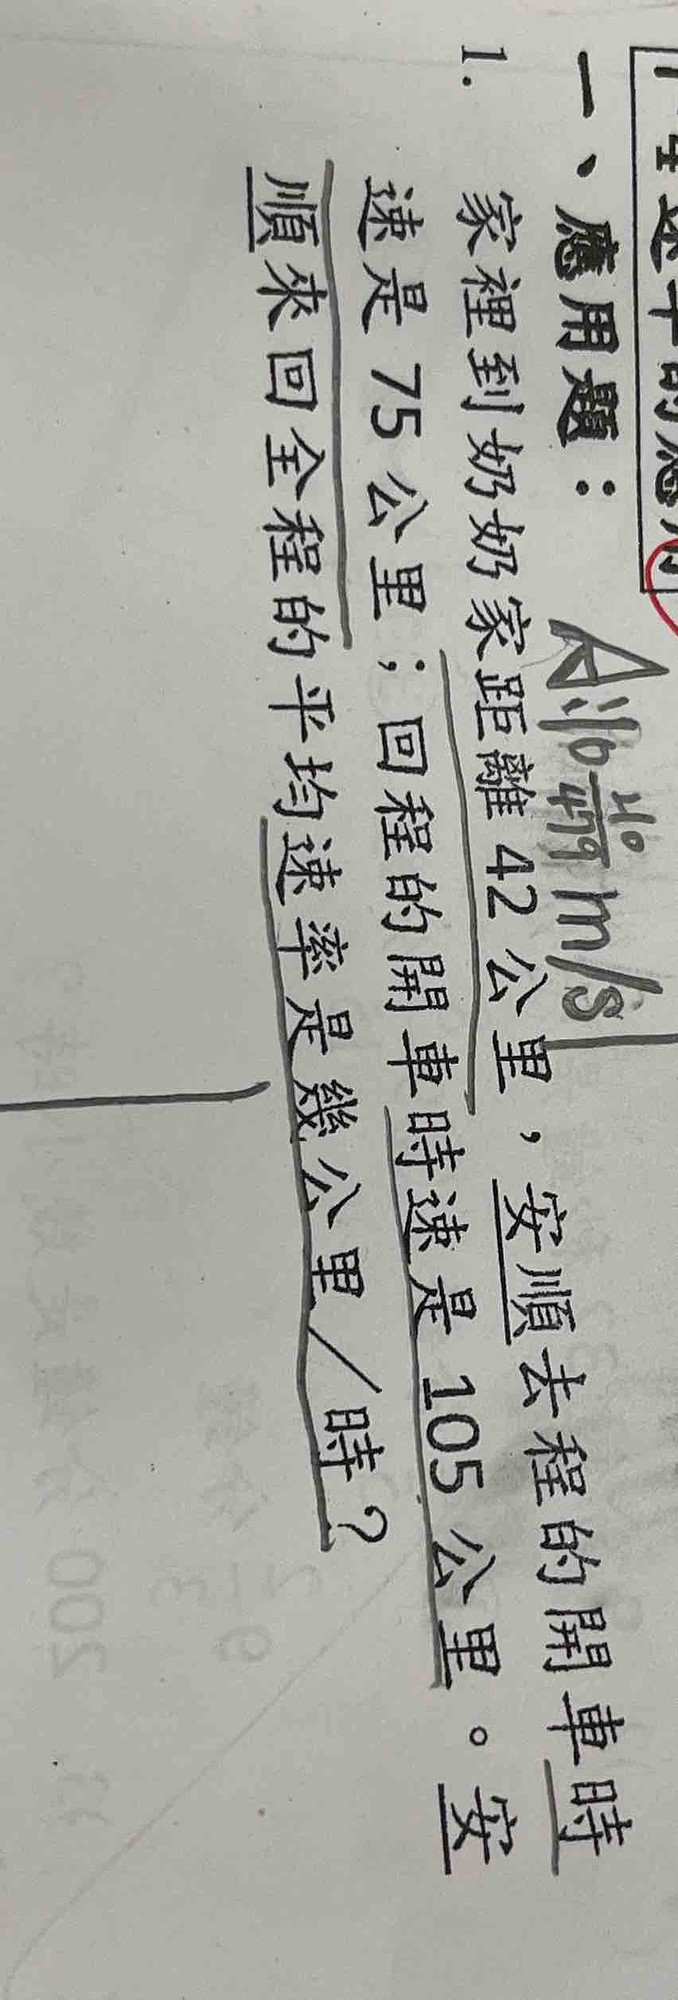 一、應用題：
1. 家裡到奶奶家距離42公里，安順去程的開車時
速是75公里；回程的開車時速是105公里。安
順來回全程的平均速率是幾公里／時？
m/s